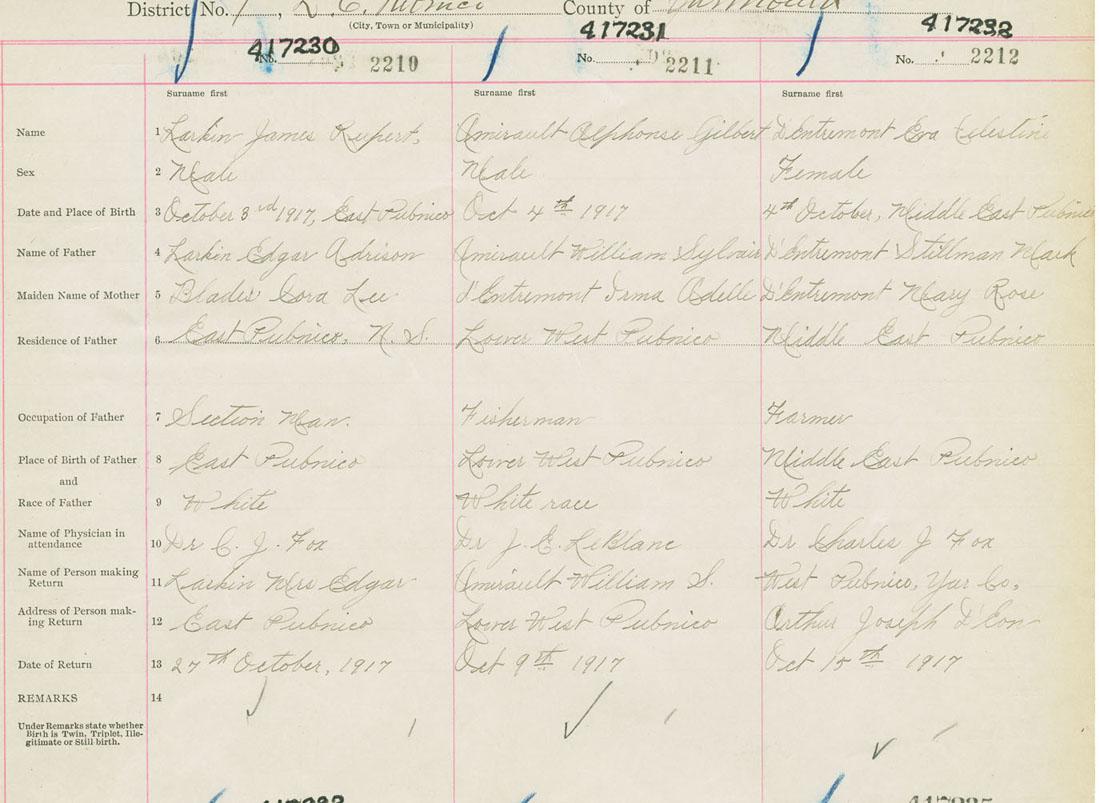 District No. 1, L. E. Pubnico County of Yarmouth
(City, Town or Municipality)
417230 417231 417232
No. 2210 No. 2211 No. 2212
Surname first Surname first Surname first
Name 1 Larkin James Rupert. Amirault Alphonse Gilbert D'Entremont Eva Celestine
Sex 2 Male Male Female
Date and Place of Birth 3 October 3rd 1917, East Pubnico Oct 4th 1917 4th October, Middle East Pubnico
Name of Father 4 Larkin Edgar Adrison Amirault William Sylvain D'Entremont Stillman Mark
Maiden Name of Mother 5 Blades Cora Lee d'Entremont Irma Adelle D'Entremont Mary Rose
Residence of Father 6 East Pubnico, N. S. Lower West Pubnico Middle East Pubnico
Occupation of Father 7 Section Man. Fisherman Farmer
Place of Birth of Father 8 East Pubnico Lower West Pubnico Middle East Pubnico
and
Race of Father 9 White White race White
Name of Physician in attendance 10 Dr C. J. Fox Dr J. E. LeBlanc Dr Charles J Fox
Name of Person making Return 11 Larkin Mrs Edgar Amirault William S. West Pubnico, Yar Co,
Address of Person making Return 12 East Pubnico Lower West Pubnico Arthur Joseph D'Eon
Date of Return 13 27th October, 1917 Oct 9th 1917 Oct 15th 1917
REMARKS 14
Under Remarks state whether
Birth is Twin, Triplet, Ille-
gitimate or Still birth.